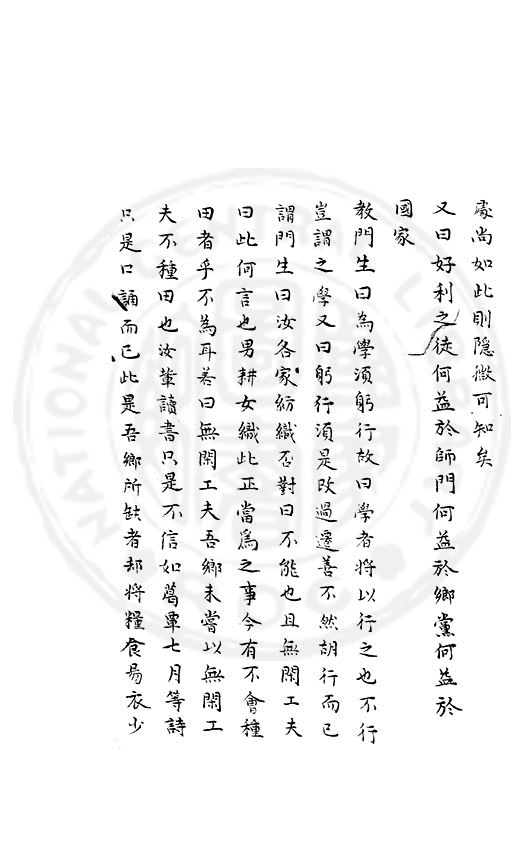 處尚如此則隱微可知矣
又曰好利之徒何益於師門何益於鄉黨何益於
國家
教門生曰為學須躬行故曰學者將以行之也不行
豈謂之學又曰躬行須是改過遷善不然胡行而已
謂門生曰汝各家紡織否對曰不能也且無閑工夫
曰此何言也男耕女織此正當爲之事今有不會種
田者乎不為耳若曰無閑工夫吾鄉未嘗以無閑工
夫不種田也汝輩讀書只是不信如葛覃七月等詩
只是口誦而已此是吾鄉所缺者却將糧食易衣少
NATIONAL CENTRAL LIBRARY